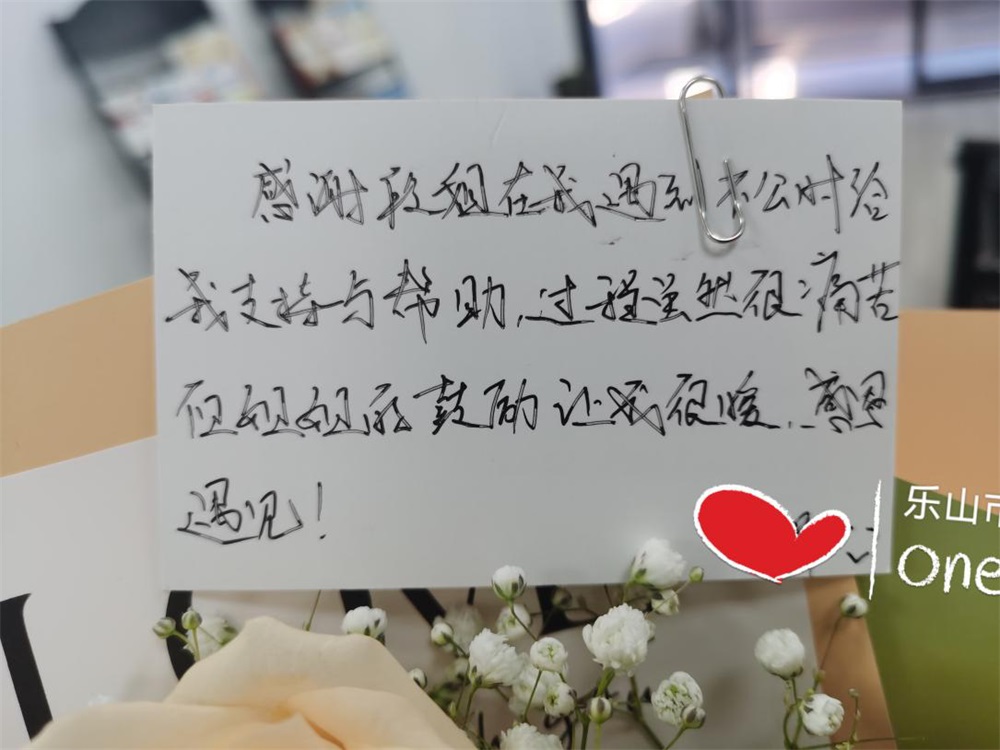 感谢段姐在我遇到不公时给
我支持与帮助,过程虽然很痛苦
但姐姐的鼓励让我很暖.感恩
遇见!
乐山市
One